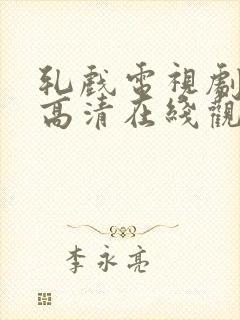 乳戲電視劇
高清在綫觀
李永亮